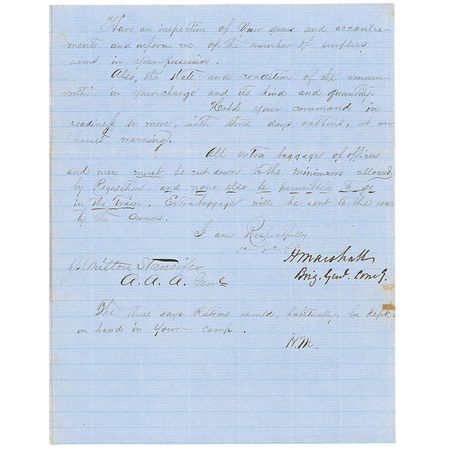 Have an inspection of Your guns and accoutre-
ments and inform me of the number of surplus
arms in Your possession.
Also, the state and condition of the ammu-
nition in your charge and its kind and quantity.
Hold your command in
readiness to move, with three days rations, at an
hours warning.
All extra baggage of officers
and men must be cut down to the minimum allowed
by Regulations and none else be permitted to go
in the train. Extra baggage will be sent to the rear
by the Owners.
I am Respectfully
H Marshall
Brig. Genl. Comg.
Milton
A. A. A. Genl
The three days Rations should, habitually, be kept
on hand in Your camp.
H.M.